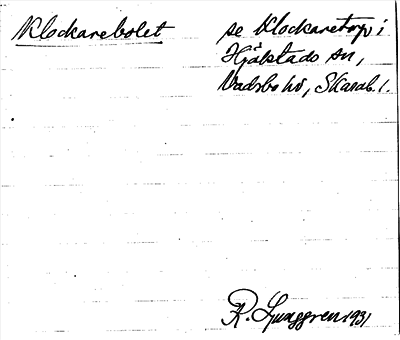 Klockarebolet se Klockaretorp i
Hjälstads sn,
Vadsbo hd, Skarab. l.
R. Ljunggren 1931